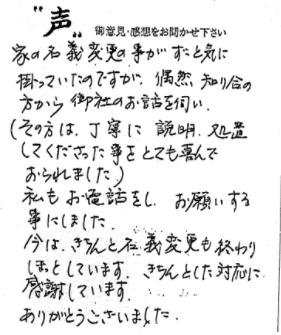 "声"
御意見・感想をお聞かせ下さい
家の名義変更の事がずっと気に
掛っていたのですが、偶然、知り合の
方から御社のお話を伺い、
(その方は、丁寧に説明、処置
してくださった事をとても喜んで
おられました)
私もお電話をし、お願いする
事にしました。
今は、きちんと名義変更も終わり
ほっとしています。きちんとした対応に
感謝しています。
ありがとうございました。